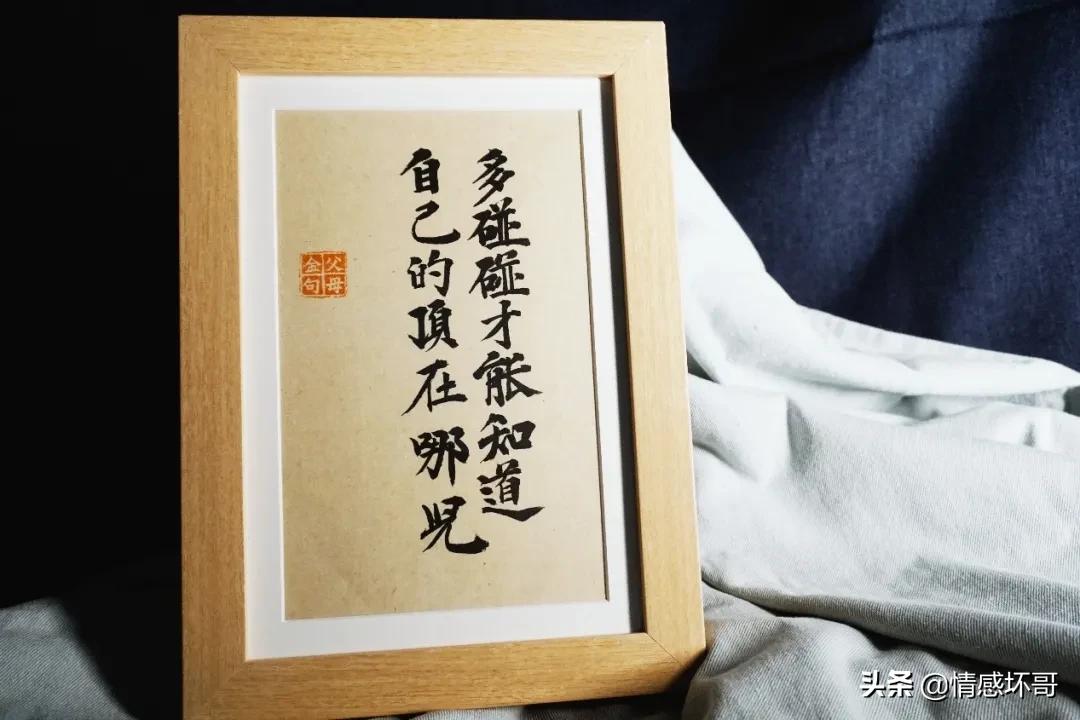 多碰碰才能知道
自己的頂在哪兒
父母
金句
头条 @情感坏哥